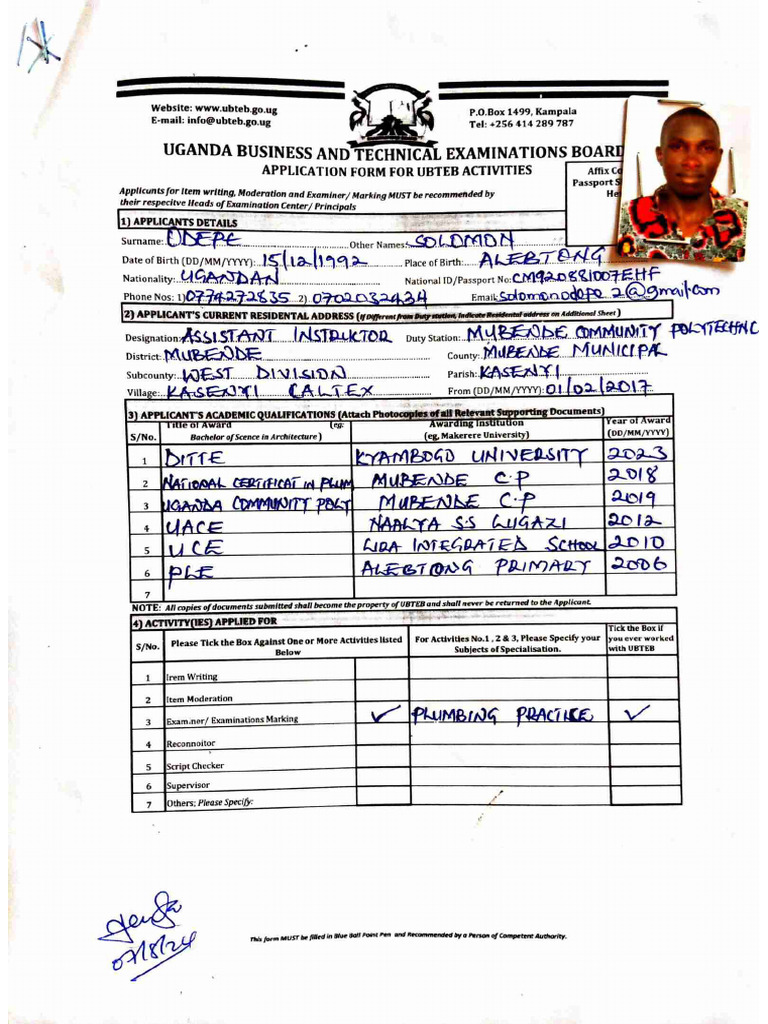 Website: www.ubteb.go.ug
E-mail: info@ubteb.go.ug
P.O.Box 1499, Kampala
Tel: +256 414 289 787
UGANDA BUSINESS AND TECHNICAL EXAMINATIONS BOARD
APPLICATION FORM FOR UBTEB ACTIVITIES
Affix Co
Passport S
He
Applicants for Item writing, Moderation and Examiner/ Marking MUST be recommended by
their respecitve Heads of Examination Center/ Principals
1) APPLICANTS DETAILS
Surname: ODEPE Other Names: SOLOMON
Date of Birth (DD/MM/YYYY): 15/12/1992 Place of Birth: ALEBTONG
Nationality: UGANDAN National ID/Passport No: CM920881007EHF
Phone Nos: 1) 0774272835 2) 0702032434 Email: solomonodepe2@gmail.com
2) APPLICANT'S CURRENT RESIDENTAL ADDRESS (If Different from Duty station, Indicate Residental address on Additional Sheet )
Designation: ASSISTANT INSTRUKTOR Duty Station: MUBENDE COMMUNITY POLYTECHNC
District: MUBENDE County: MUBENDE MUNICIPAL
Subcounty: WEST DIVISION Parish: KASENYI
Village: KASENYI CALTEX From (DD/MM/YYYY): 01/02/2017
3) APPLICANT'S ACADEMIC QUALIFICATIONS (Attach Photocopies of all Relevant Supporting Documents)
S/No. Title of Award (eg: Bachelor of Scence in Architecture ) Awarding Institution (eg, Makerere University) Year of Award (DD/MM/YYYY)
1 DITTE KYAMBOGO UNIVERSITY 2023
2 NATIONAL CERTIFICAT IN PLUM MUBENDE C.P 2018
3 UGANDA COMMUNITY POLY MUBENDE C.P 2019
4 UACE NAALYA S.S LUGAZI 2012
5 UCE LIRA INTEGRATED SCHOOL 2010
6 PLE ALEBTONG PRIMARY 2006
7
NOTE: All copies of documents submitted shall become the property of UBTEB and shall never be returned to the Applicant.
4) ACTIVITY(IES) APPLIED FOR
S/No. Please Tick the Box Against One or More Activities listed Below For Activities No.1 , 2 & 3, Please Specify your Subjects of Specialisation. Tick the Box if you ever worked with UBTEB
1 Irem Writing
2 Item Moderation
3 Examiner/ Examinations Marking ✓ PLUMBING PRACTICE ✓
4 Reconnoitor
5 Script Checker
6 Supervisor
7 Others; Please Specify:
07/8/24
This form MUST be filled in Blue Ball Point Pen and Recommended by a Person of Competent Authority.